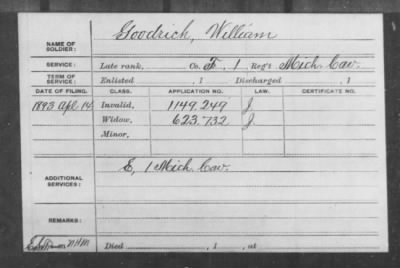 Goodrich, William
NAME OF SOLDIER:
SERVICE: Late rank, Co. F, 1 Reg't Mich. Cav.
TERM OF SERVICE: Enlisted , 1 Discharged , 1
DATE OF FILING. CLASS. APPLICATION NO. LAW. CERTIFICATE NO.
1893 Apl. 14. Invalid, 1149.249 J
Widow, 623.732 J
Minor,
E, 1 Mich. Cav.
ADDITIONAL SERVICES:
REMARKS:
Died , 1 , at